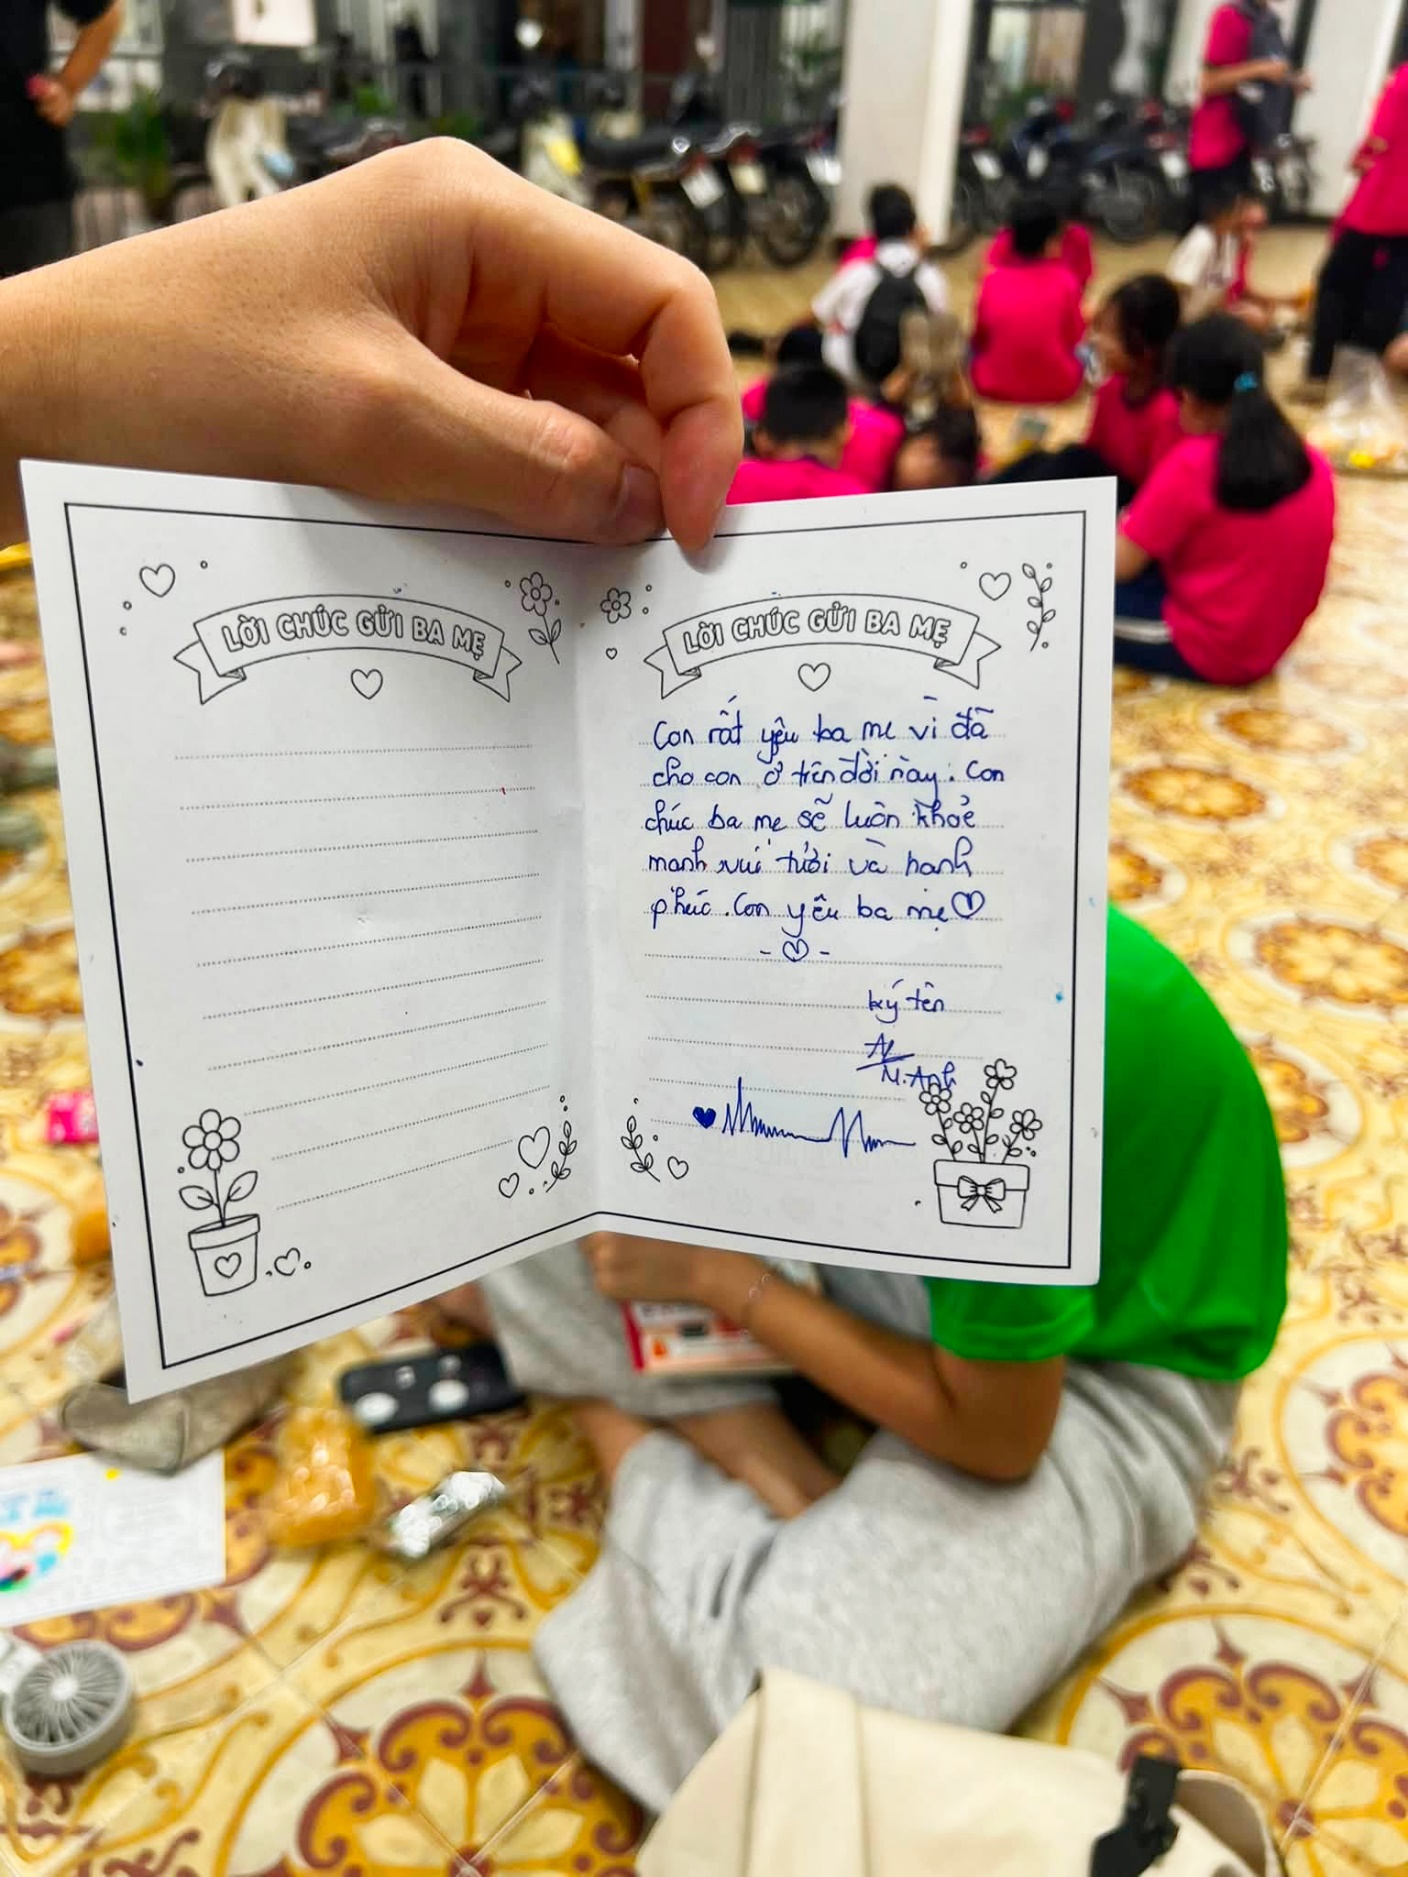 LỜI CHÚC GỬI BA MẸ
LỜI CHÚC GỬI BA MẸ
Con rất yêu ba mẹ vì đã
cho con ở trên đời này. Con
chúc ba mẹ sẽ luôn khoẻ
mạnh vui tươi và hạnh
phúc. Con yêu ba mẹ
ký tên
M. Anh